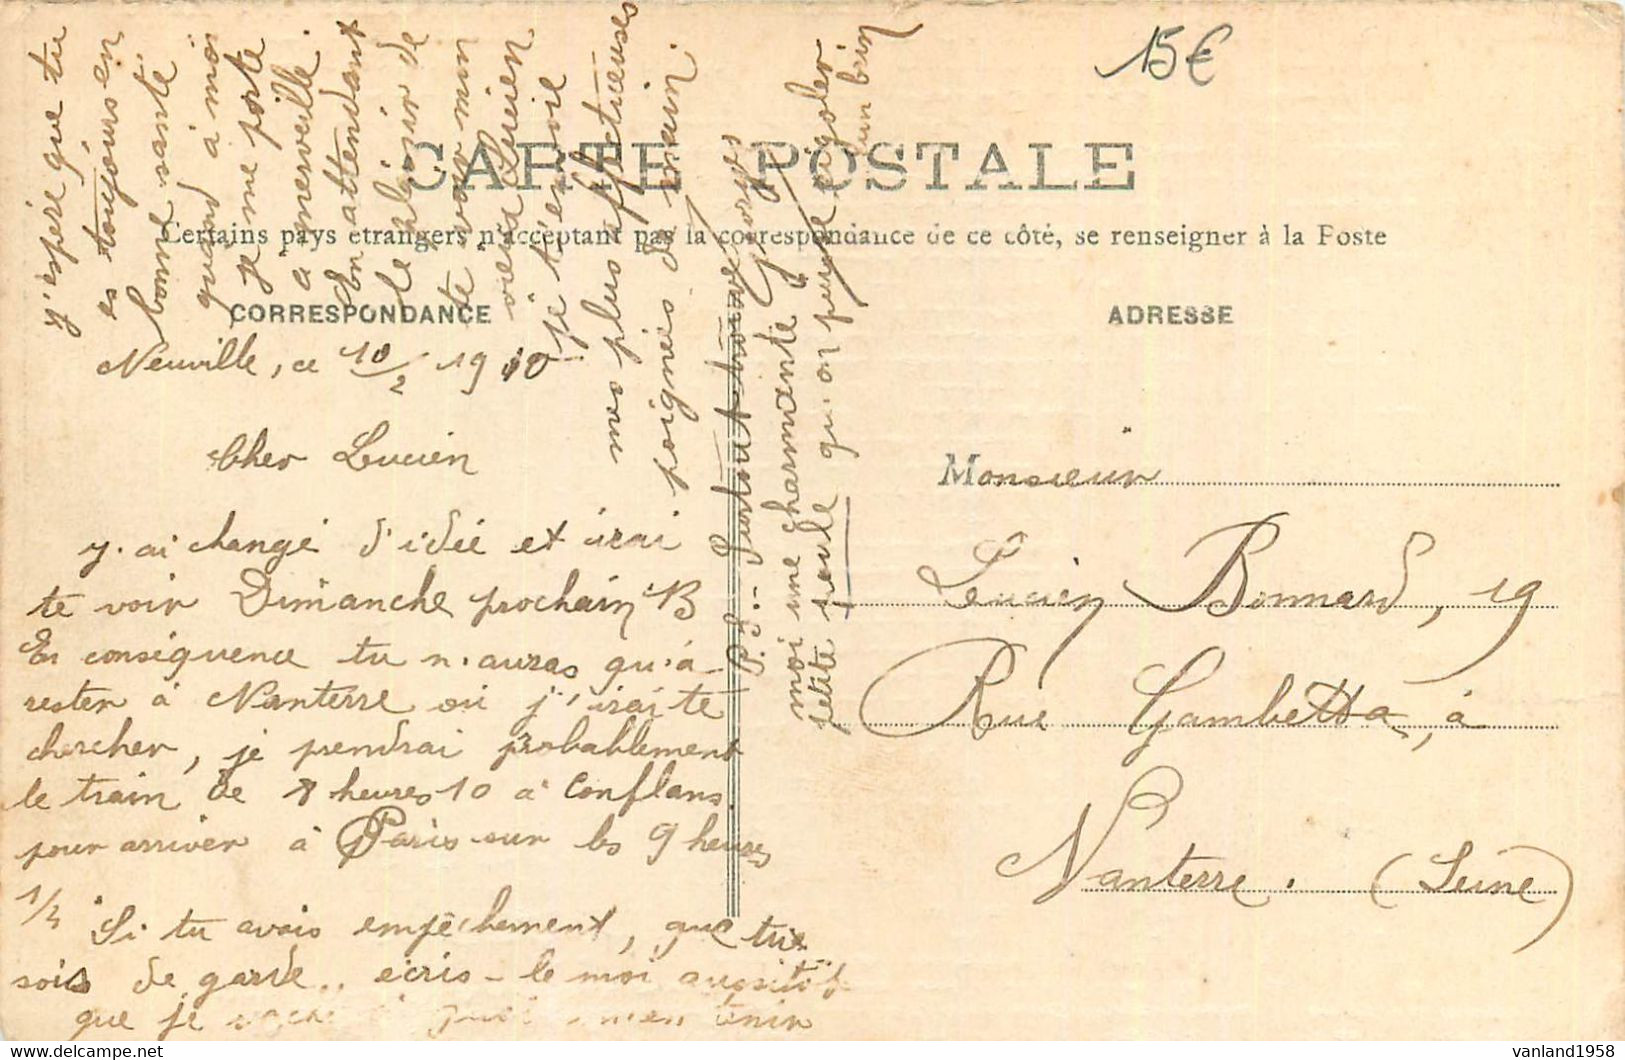 15€
CARTE POSTALE
Certains pays étrangers n'acceptant pas la correspondance de ce côté, se renseigner à la Poste
CORRESPONDANCE
ADRESSE
Neuville, ce 10/2 1910
Cher Lucien
J'ai changé d'idée et irai
te voir Dimanche prochain 13
En conséquence tu n'auras qu'à
rester à Nanterre où j'irai te
chercher, je prendrai probablement
le train de 8 heures 10 à Conflans
pour arriver à Paris sur les 9 heures
1/2 Si tu avais empêchement, que tu
sois de garde.. écris-le moi aussitôt
que je sache à quoi m'en tenir
J'espère que tu
es toujours en
bonne santé
quand à moi
je me porte
à merveille.
En attendant
le plaisir de
te voir mon
vieux Lucien
je t'envoie
mes plus affectueuses
poignées de main.
P.S. - Surtout trouve
moi une charmante
petite seule qu'on puisse rigoler
un brin
Monsieur
Lucien Bonnard, 19
Rue Gambetta, à
Nanterre. (Seine)
vanland1958